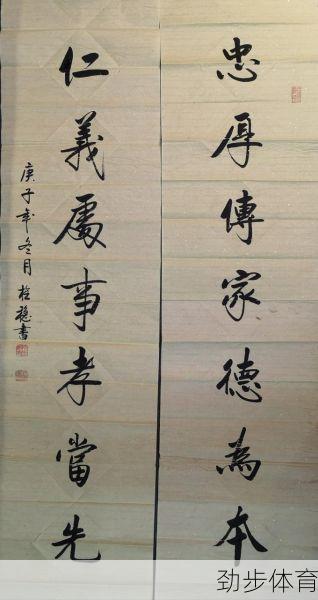 忠厚傳家德為本
仁義處事孝當先
庚子年冬月
書
劲步体育